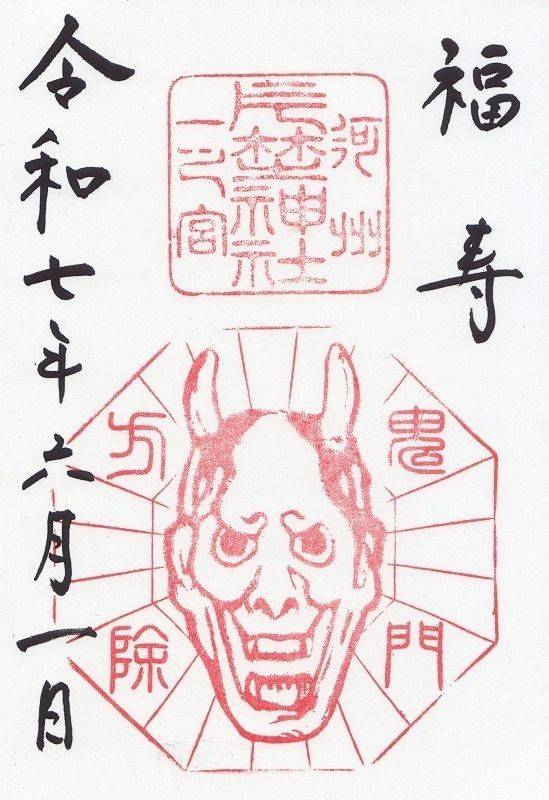 福寿
河州
片埜神社
一之宮
鬼門
方除
令和七年六月一日